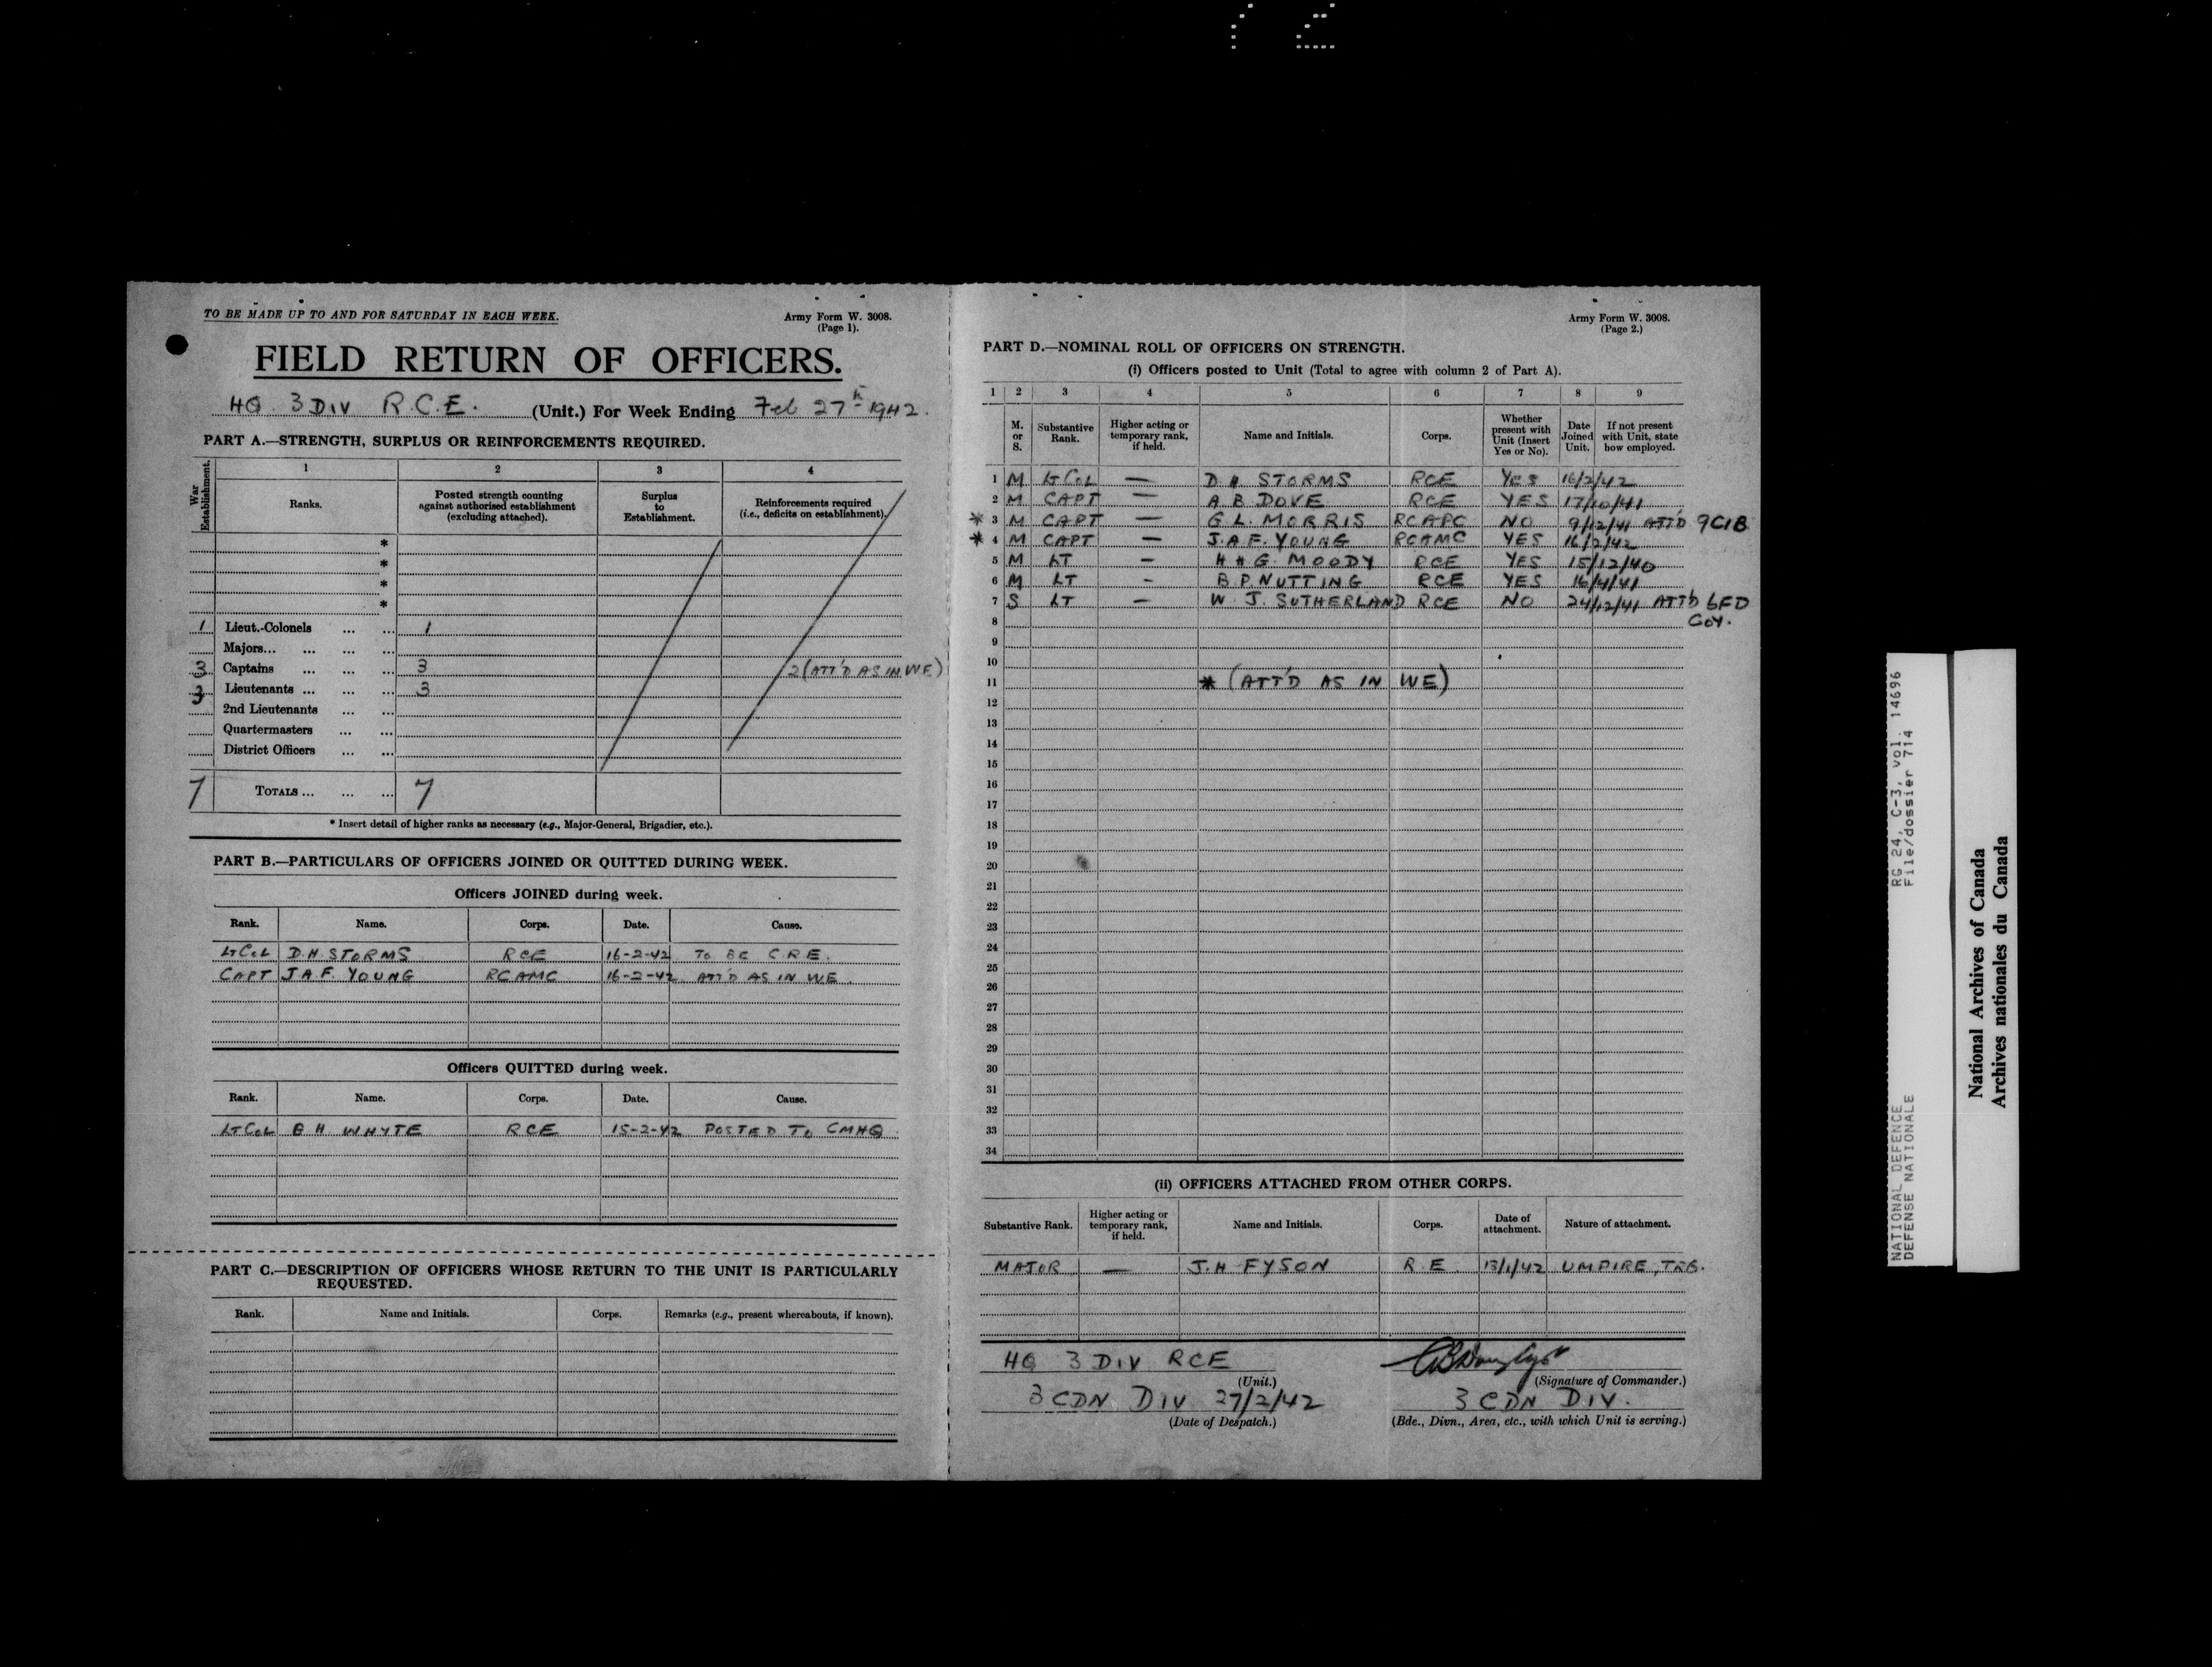 TO BE MADE UP TO AND FOR SATURDAY IN EACH WEEK.
Army Form W. 3008.
(Page 1).
FIELD RETURN OF OFFICERS.
HQ 3 DIV R.C.E. (Unit.) For Week Ending Feb 27th 1942.
PART A.—STRENGTH, SURPLUS OR REINFORCEMENTS REQUIRED.
War Establishment.
1 2 3 4
Ranks.
Posted strength counting against authorised establishment (excluding attached).
Surplus to Establishment.
Reinforcements required (i.e., deficits on establishment).
*
*
*
*
1 Lieut.-Colonels ... ... 1
Majors... ... ... ...
3 Captains ... ... ... 3 2 (ATT'D AS IN WE)
3 Lieutenants ... ... ... 3
2nd Lieutenants ... ...
Quartermasters ... ...
District Officers ... ...
7 TOTALS ... ... ... 7
* Insert detail of higher ranks as necessary (e.g., Major-General, Brigadier, etc.).
PART B.—PARTICULARS OF OFFICERS JOINED OR QUITTED DURING WEEK.
Officers JOINED during week.
Rank. Name. Corps. Date. Cause.
LT COL D.H. STORMS RCE 16-2-42 TO BE C.R.E.
CAPT J.A.F. YOUNG RCAMC 16-2-42 ATT'D AS IN WE.
Officers QUITTED during week.
Rank. Name. Corps. Date. Cause.
LT COL B H WHYTE RCE 15-2-42 POSTED TO CMHQ
PART C.—DESCRIPTION OF OFFICERS WHOSE RETURN TO THE UNIT IS PARTICULARLY
REQUESTED.
Rank. Name and Initials. Corps. Remarks (e.g., present whereabouts, if known).
Army Form W. 3008.
(Page 2.)
PART D.—NOMINAL ROLL OF OFFICERS ON STRENGTH.
(i) Officers posted to Unit (Total to agree with column 2 of Part A).
1 2 3 4 5 6 7 8 9
M. or S.
Substantive Rank.
Higher acting or temporary rank, if held.
Name and Initials.
Corps.
Whether present with Unit (Insert Yes or No).
Date Joined Unit.
If not present with Unit, state how employed.
1 M LT COL — D H STORMS RCE YES 16/2/42
2 M CAPT — A B DOVE RCE YES 17/10/41
* 3 M CAPT — G L. MORRIS RCAPC NO 9/12/41 ATT'D 9CIB
* 4 M CAPT — J.A.F. YOUNG RCAMC YES 16/2/42
5 M LT — H H G. MOODY RCE YES 15/12/40
6 M LT - B P NUTTING RCE YES 16/4/41
7 S LT — W. J. SUTHERLAND RCE NO 24/12/41 ATT'D 6FD
8 COY.
9
10
11 * (ATT'D AS IN WE)
12
13
14
15
16
17
18
19
20
21
22
23
24
25
26
27
28
29
30
31
32
33
34
(ii) OFFICERS ATTACHED FROM OTHER CORPS.
Substantive Rank.
Higher acting or temporary rank, if held.
Name and Initials.
Corps.
Date of attachment.
Nature of attachment.
MAJOR — J.H FYSON R.E. 13/1/42 UMPIRE,
HQ 3 DIV RCE
(Unit.)
(Signature of Commander.)
3 CDN DIV 27/2/42
3 CDN DIV.
(Date of Despatch.)
(Bde., Divn., Area, etc., with which Unit is serving.)
NATIONAL DEFENCE RG 24, C-3, vol. 14696
DEFENSE NATIONALE File/dossier 714
National Archives of Canada
Archives nationales du Canada